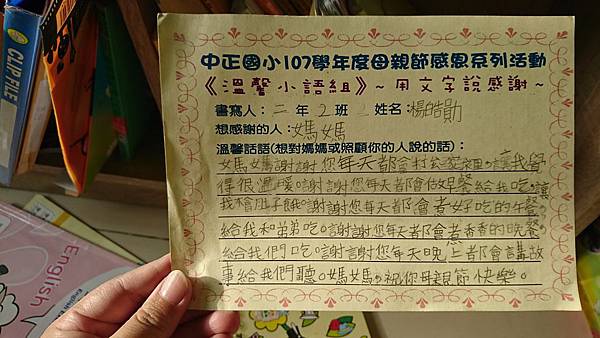 CLIP FILE
English
中正國小107學年度母親節感恩系列活動
《溫馨小語組》~用文字說感謝~
書寫人：二年2班 姓名：楊皓勛
想感謝的人：媽媽
溫馨話語(想對媽媽或照顧你的人說的話)：
媽媽謝謝您每天都會打公家裡，讓我覺
得很溫暖。謝謝您每天都會做早餐給我吃，讓
我不會肚子餓。謝謝您每天都會煮好吃的午餐
給我和弟弟吃。謝謝您每天都會煮香香的晚餐
給我們吃。謝謝您每天晚上都會講故
事給我們聽。媽媽，祝你母親節快樂。